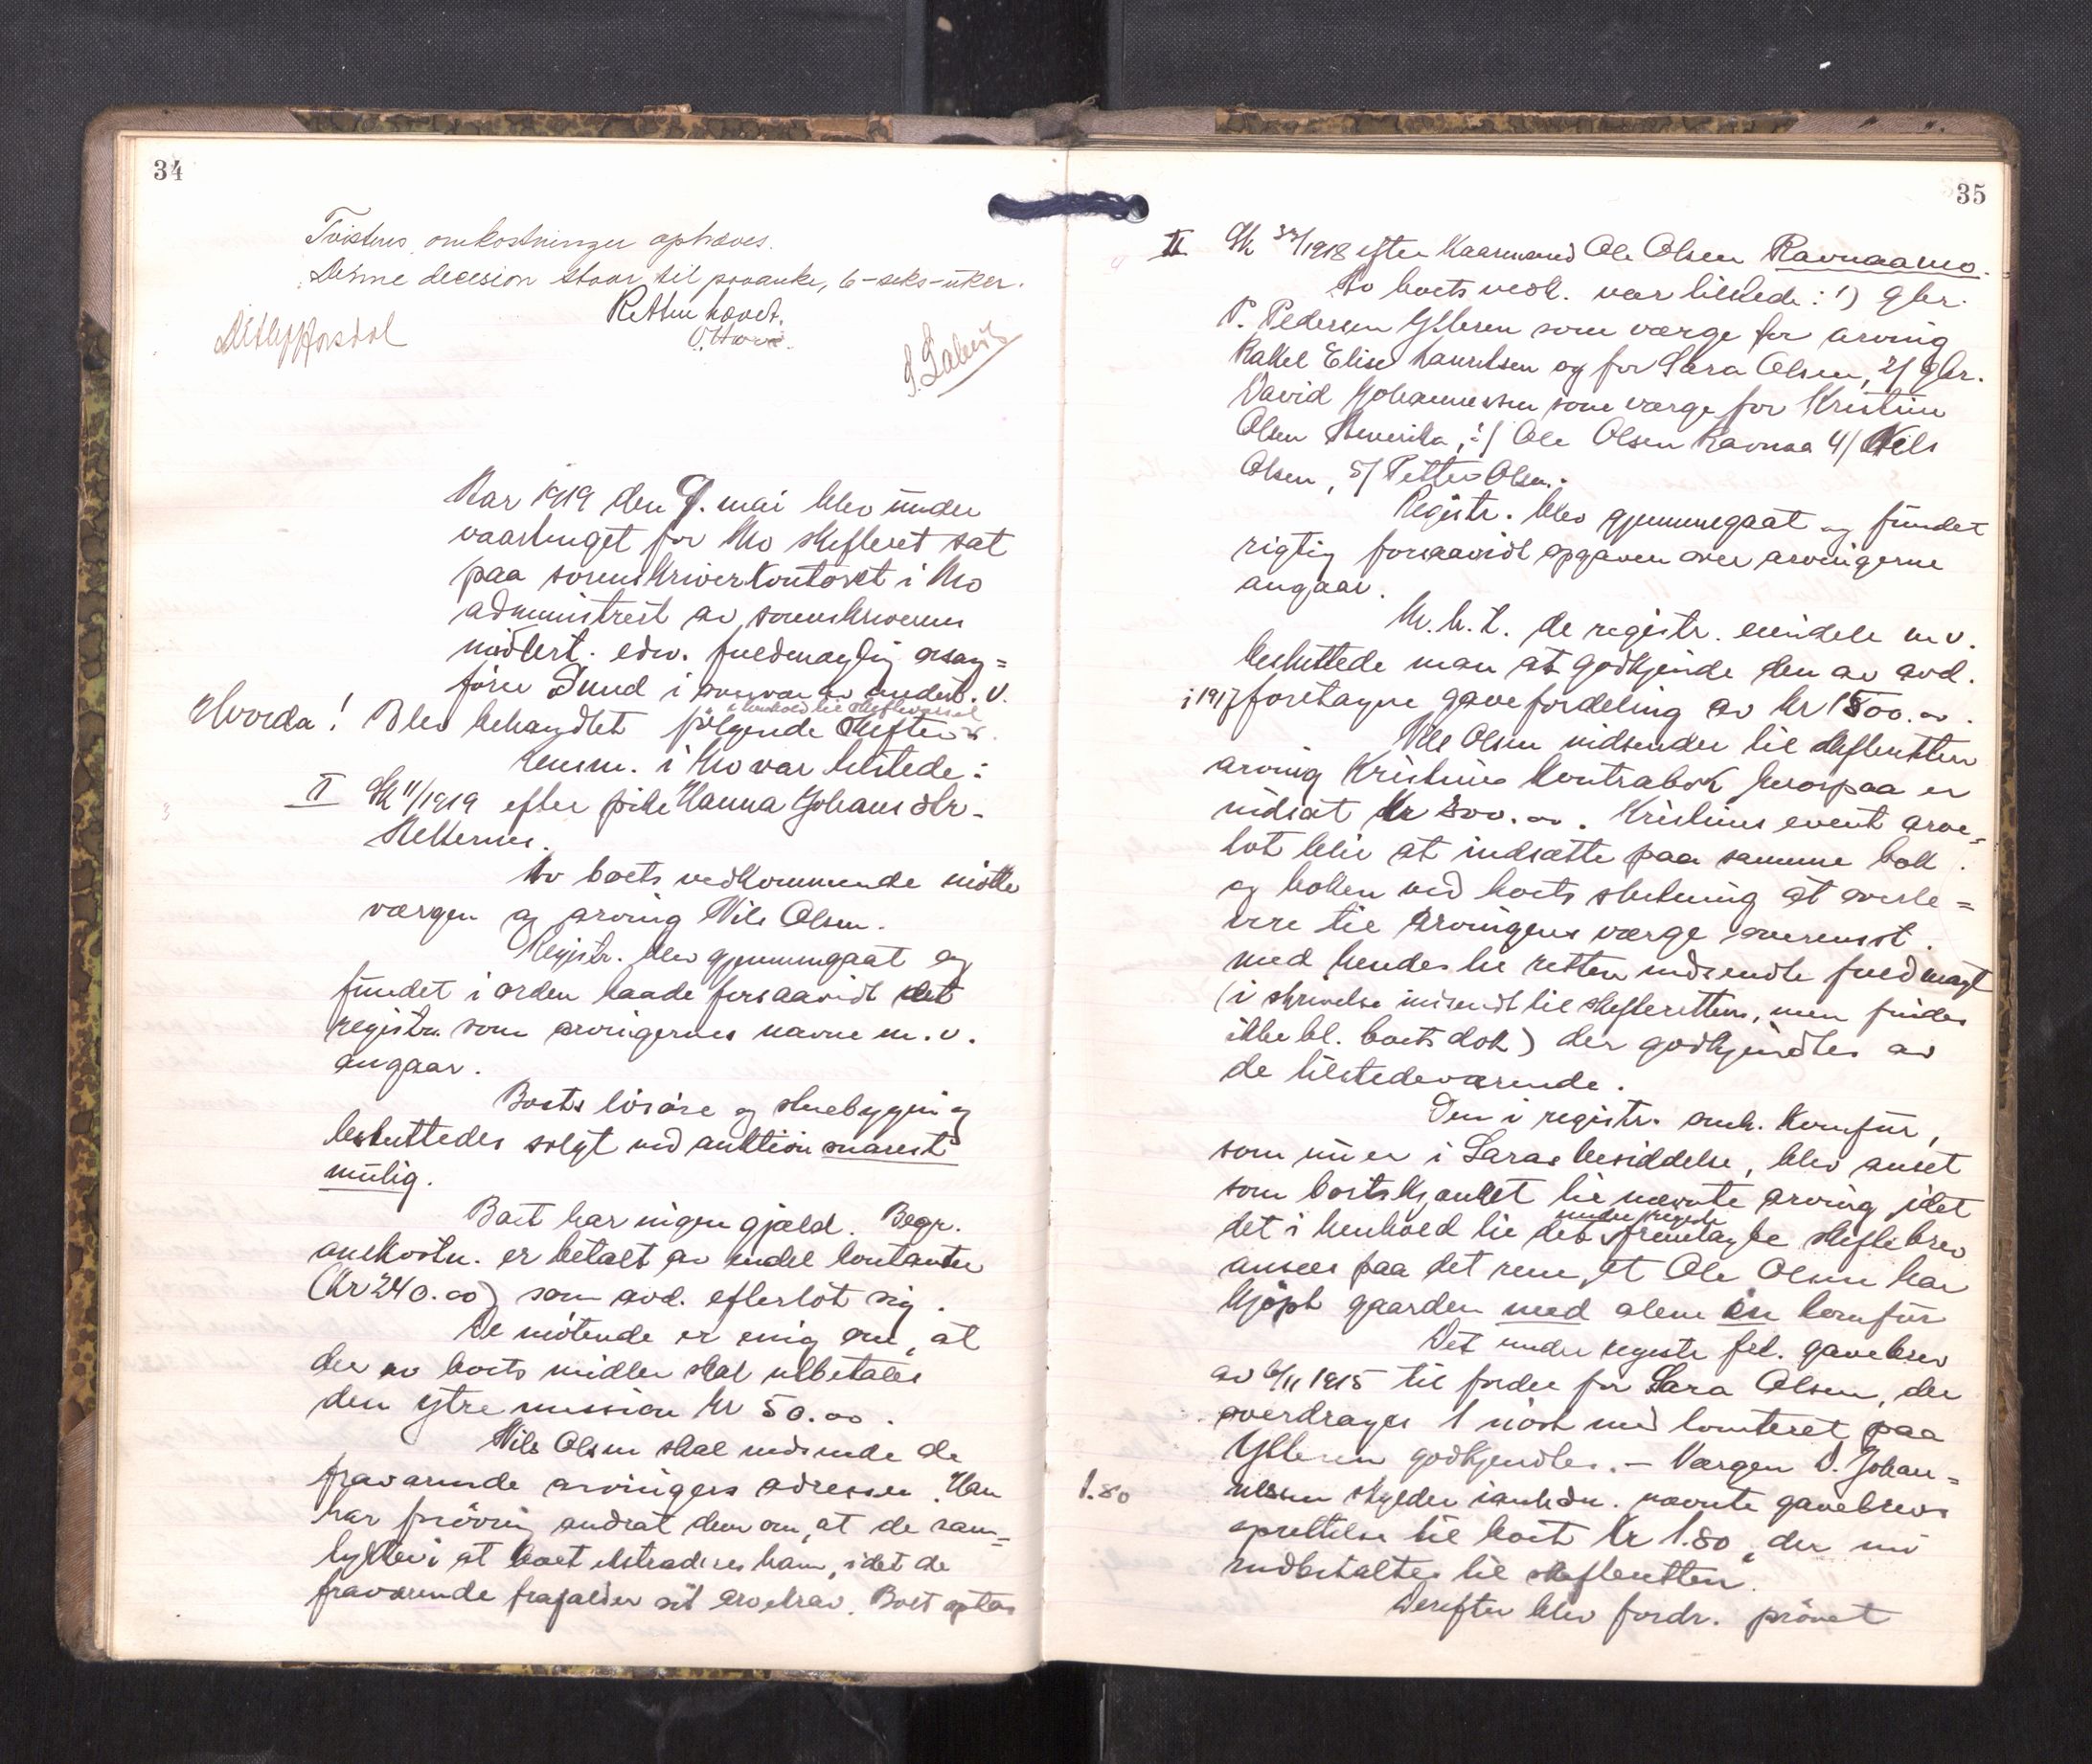 34
Tvistens omkostninger ophæves.
Denne decision staar til paaanke, 6-seks-uker.
Retten hævet.
Aar 1919 den 9. mai blev under
vaartinget for Mo skifteret sat
paa sorenskriverkontoret i Mo
administrert av sorenskriverens
midlert. edsv. fuldmægtig orsag=
fører Sund i nærvær av undert. v.
Hvorda! Blev behandlet følgende skifter
i henhold til skiftevarsel
Lensm. i Mo var tilstede:
II Sk 11/1919 efter pike Hanna Johansdtr.
Av boets vedkommende møtte
værgen og arving Nils Olsen.
Registr. blev gjennemgaat og
fundet i orden baade forsaavidt det
registr. som arvingernes navne m.v.
angaar.
Boets løsøre og skuebygning
besluttedes solgt ved auktion snarest
mulig.
Boet har ingen gjæld. Begr.
omkostn. er betalt av endel kontanter
(Kr 240.00) som avd. efterlot sig.
De møtende er enig om, at
der av boets midler skal utbetales
den ytre mission Kr 50.00.
Nils Olsen skal indsende de
fraværende arvingers adresser. Han
har forøvrig andrat dem om, at de sam=
tykker i at boet extraderes ham, idet de
fraværende frafalder sit arvekrav. Boet optas
35
II Sk 32/1918 efter kaarmand Ole Olsen Ravnaamo.
Av boets vedk. var tilstede: 1) gbr.
P. Pedersen Ytteren som værge for arving
Rakel Elise Lauritsen og for Sara Olsen, 2/ gbr.
David Johannessen som værge for Kristine
Olsen Amerika, 3/ Ole Olsen Ravnaa 4/ Nils
Olsen, 5/ Petter Olsen.
Registr. blev gjennemgaat og fundet
rigtig forsaavidt opgaven over arvingerne
angaar.
M.h.t. de registr. eiendele m.v.
besluttede man at godkjende den av avd.
i 1917 foretagne gavefordeling av kr 1500.00.
Nils Olsen indsender til skifteretten
arving Kristines kontrabok hvorpaa er
indsat Kr 300.00. Kristines event arve=
lot blir at indsætte paa samme bok
og boken ved boets slutning at overle=
vere til arvingens værge overensst.
med hendes til retten indsendte fuldmagt
(i skrivelse indsendt til skifteretten, men findes
ikke bl. boets dok) der godkjendtes av
de tilstedeværende.
Den i registr. omh. komfür,
som nu er i Saras besiddelse, blev anset
som bortskjænket til nævnte arving idet
det i henhold til det fremlagte skiftebrev
under registr.
ansees paa det rene, at Ole Olsen har
kjøpt gaarden med alene en komfür
Det under registr frl. gavebrev
av 6/11 1915 til fordel for Sara Olsen, der
overdrages 1 nøst med tomteret paa
Ytteren godkjendtes. – Værgen D. Johan=
1.80 nessen skylder ianledn. nævnte gavebrevs
oprettelse til boet Kr 1.80, der nu
indbetaltes til skifteretten.
Derefter blev fordr. prøvet